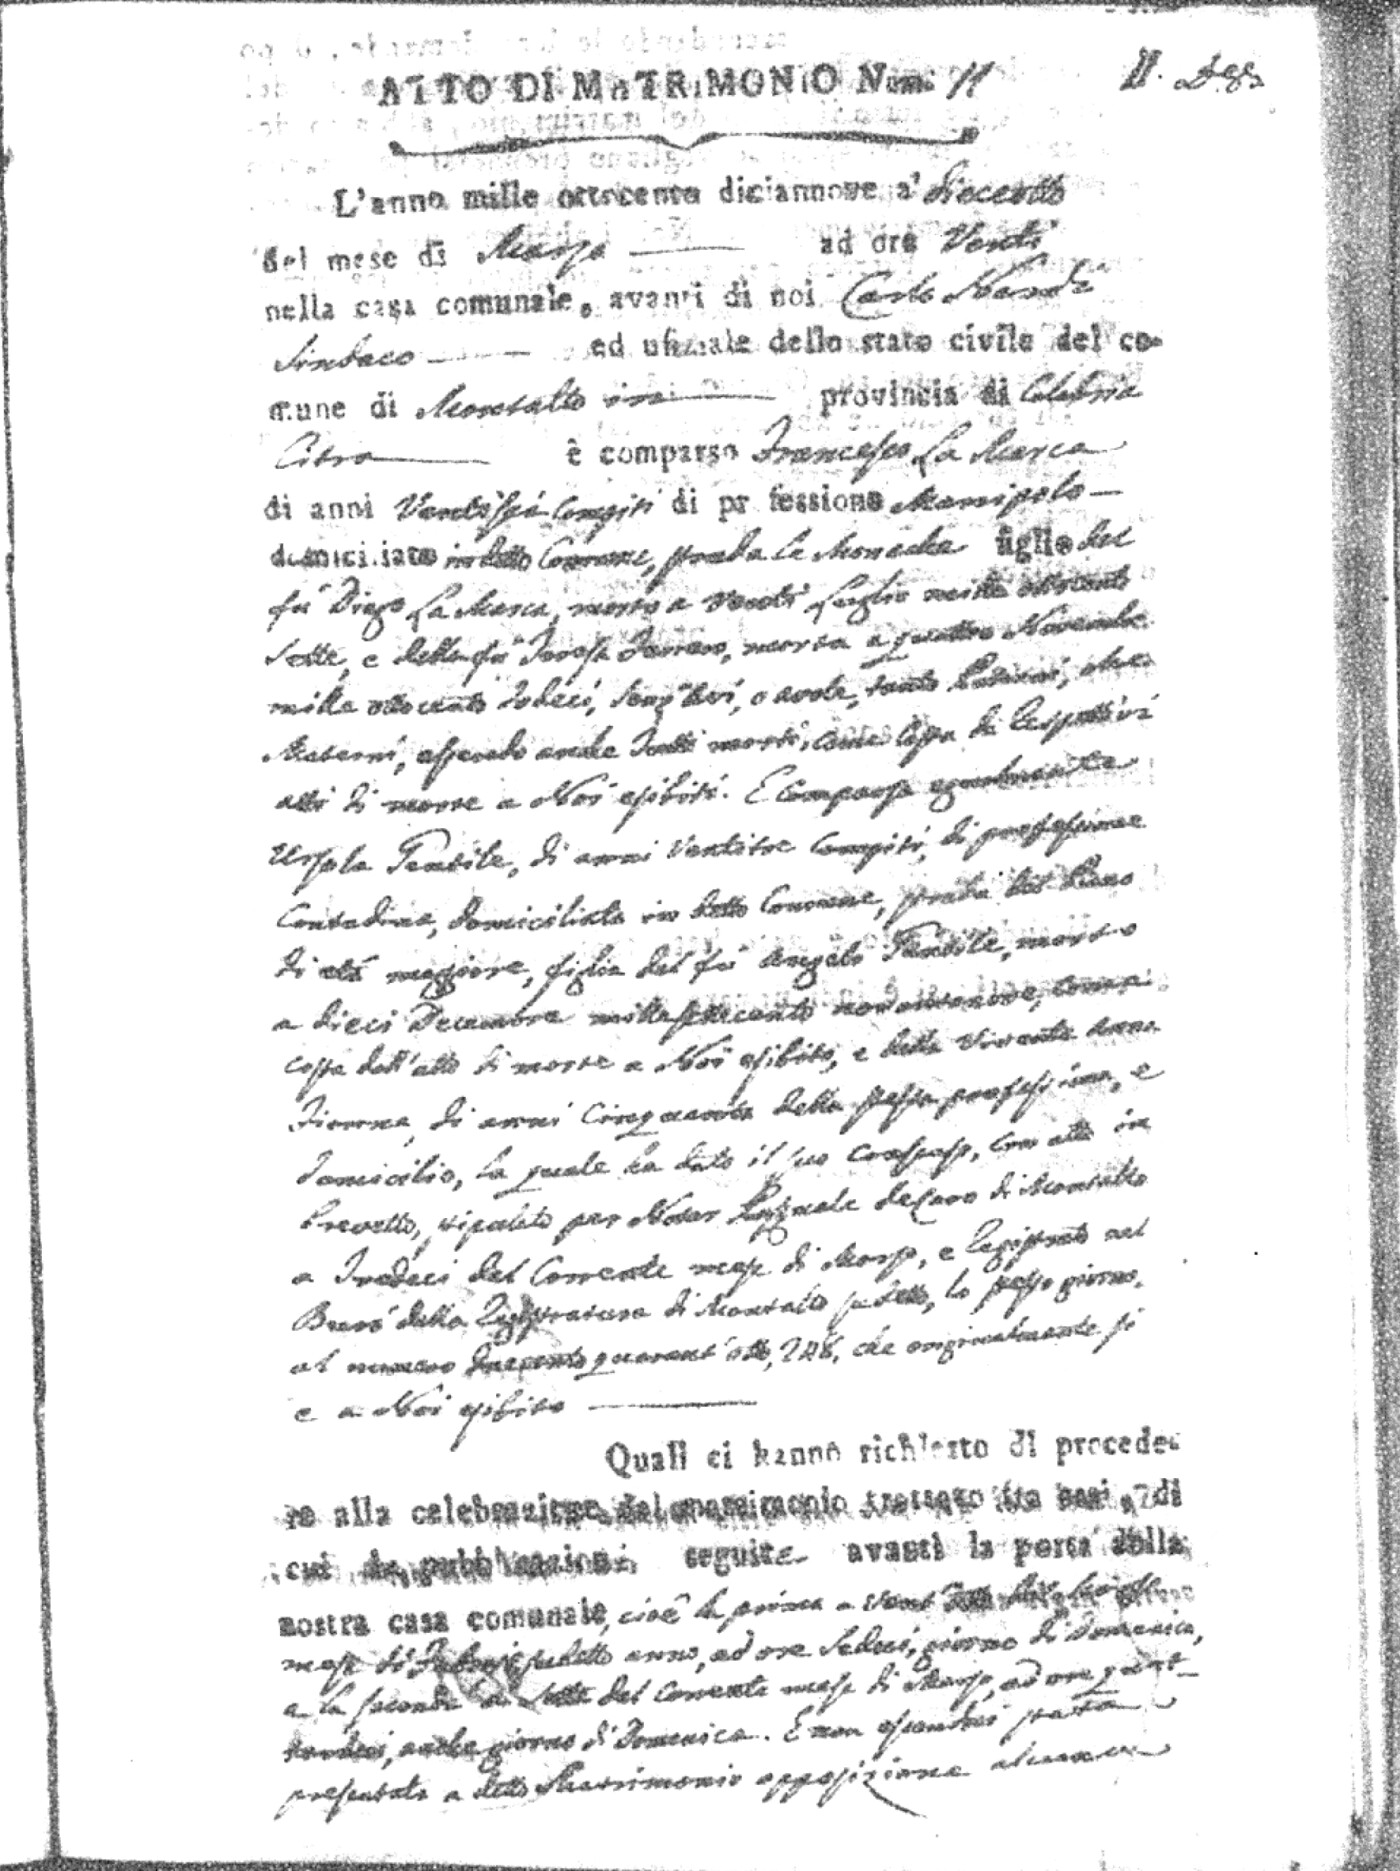 ATTO DI MATRIMONIO Num. 11
L'anno mille ottocento diciannove a' dieceotto
del mese di Marzo ad ore Venti
nella casa comunale, avanti di noi Carlo Nardi
Sindaco ed ufiziale dello stato civile del co-
mune di Montalto provincia di Calabria
Citra è comparso Francesco La Marca
di anni Ventisei compiti di professione
domiciliato in detto Comune, strada le Monache figlio del
fu Diego La Marca, morto a Venti Luglio mille ottocento
Sette, e della fu Teresa, morta a quattro Novembre
mille ottocento dodeci, senz'Avi, o avole, tanto Paterni, che
Materni, essendo anche tutti morti, come costa da' respettivi
atti di morte a Noi esibiti. E comparsa egualmente
Ursola Gentile, di anni Ventitre compiti, di professione
Contadina, domiciliata in detto Comune, strada del Piano
di età maggiore, figlia del fu Angelo Gentile, morto
a dieci Decembre mille settecento novantanove, come
costa dall'atto di morte a Noi esibito, e della vivente Anna
di anni Cinquanta della stessa professione, e
domicilio, la quale ha dato il suo consenso, con atto in
Brevetto, stipulato per Notar Pasquale de Caro di Montalto
a Tredeci del Corrente mese di Marzo, e Registrato nel
Burò della Registratura di Montalto sudetto, lo stesso giorno,
al numero Duecento quarant'otto, 248, che originalmente si
è a Noi esibito
Quali ci hanno richiesto di procede-
re alla celebrazione del matrimonio trattato fra essi, di
cui le pubblicazioni seguite avanti la porta della
nostra casa comunale, cioè la prima a vent'otto
mese di Febraro sudetto anno, ad ore Sedeci, giorno di Domenica,
e la seconda a Sette del Corrente mese di Marzo, ad ore
anche giorno di Domenica. E non essendosi stata
presentata a detto Matrimonio opposizione alcuna